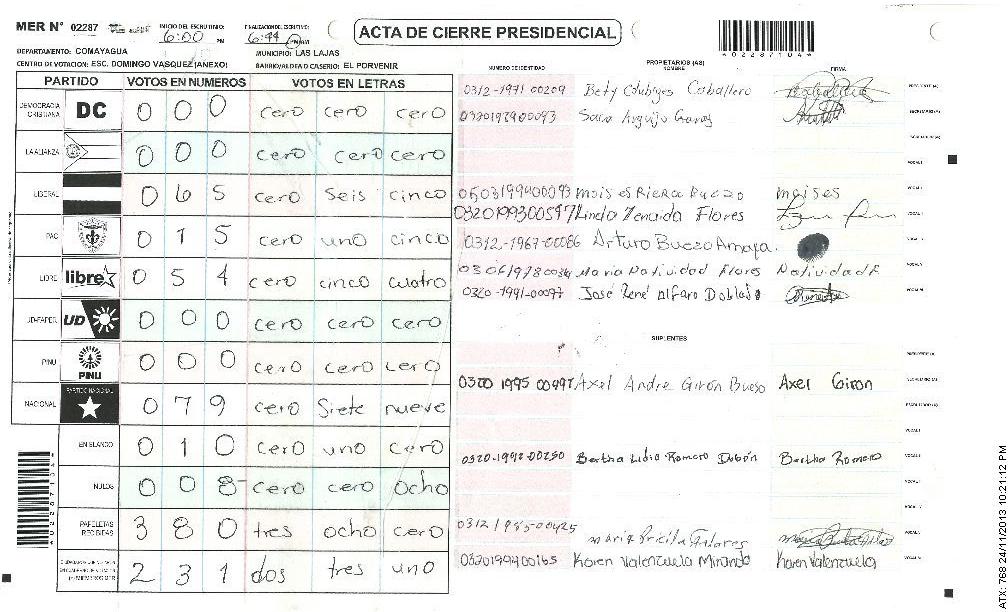 MER N° 02287 INICIO DEL ESCRUTINIO: 6:00 PM FINALIZACION DEL ESCRUTINIO: 6:44 PM
ACTA DE CIERRE PRESIDENCIAL
*02287104*
DEPARTAMENTO: COMAYAGUA MUNICIPIO: LAS LAJAS
CENTRO DE VOTACION: ESC. DOMINGO VASQUEZ (ANEXO) BARRIO/ALDEA O CASERIO: EL PORVENIR
PARTIDO VOTOS EN NUMEROS VOTOS EN LETRAS
DEMOCRACIA CRISTIANA DC 0 0 0 cero cero cero
LA ALIANZA 0 0 0 cero cero cero
LIBERAL 0 6 5 cero seis cinco
PAC 0 1 5 cero uno cinco
LIBRE libre 0 5 4 cero cinco cuatro
UD-FAPER UD 0 0 0 cero cero cero
PINU PINU 0 0 0 cero cero cero
NACIONAL PARTIDO NACIONAL 0 7 9 cero siete nueve
EN BLANCO 0 1 0 cero uno cero
NULOS 0 0 8 cero cero ocho
PAPELETAS RECIBIDAS 3 8 0 tres ocho cero
2 3 1 dos tres uno
NUMERO DE IDENTIDAD PROPIETARIOS (AS) NOMBRE FIRMA
0312-1971 00209 Bety Caballero PRESIDENTE (A)
Sara SECRETARIO (A)
ESCRUTADOR (A)
VOCAL I
0503199400093 moises Riera Buezo moises VOCAL
0320199300597 Linda Zenaida Flores VOCAL
0312-1967-00086 Arturo Buezo Amaya. VOCAL
Maria Natividad Flores Natividad F VOCAL
0320-1991-00097 José René Alfaro Doblado VOCAL
SUPLENTES
PRESIDENTE (A)
0320 1995 00497 Axel Andre Giron Bueso Axel Giron SECRETARIO (A)
ESCRUTADOR (A)
VOCAL
0320-1992-00250 Bertha Lidia Romero Dubón Bertha Romero VOCAL
VOCAL
VOCAL
0312198500425 maria VOCAL
0320199400165 Karen Valenzuela Miranda Karen Valenzuela VOCAL
ATX: 768 24/11/2013 10:21:12 PM